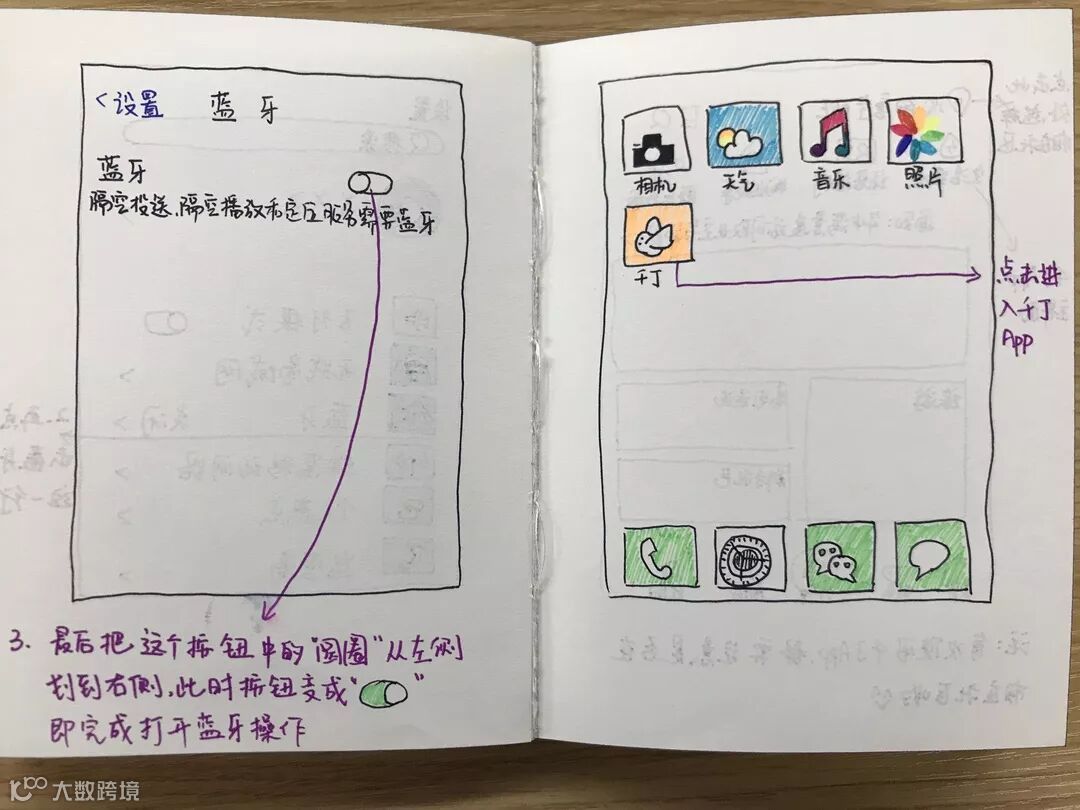 <设置 蓝牙
蓝牙
隔空投送、隔空播放和定位服务需要蓝牙
3. 最后把这个按钮中的"圆圈"从左侧
划到右侧,此时按钮变成" "
即完成打开蓝牙操作
相机 天气 音乐 照片
千丁
点击进
入千丁
App
大数跨境